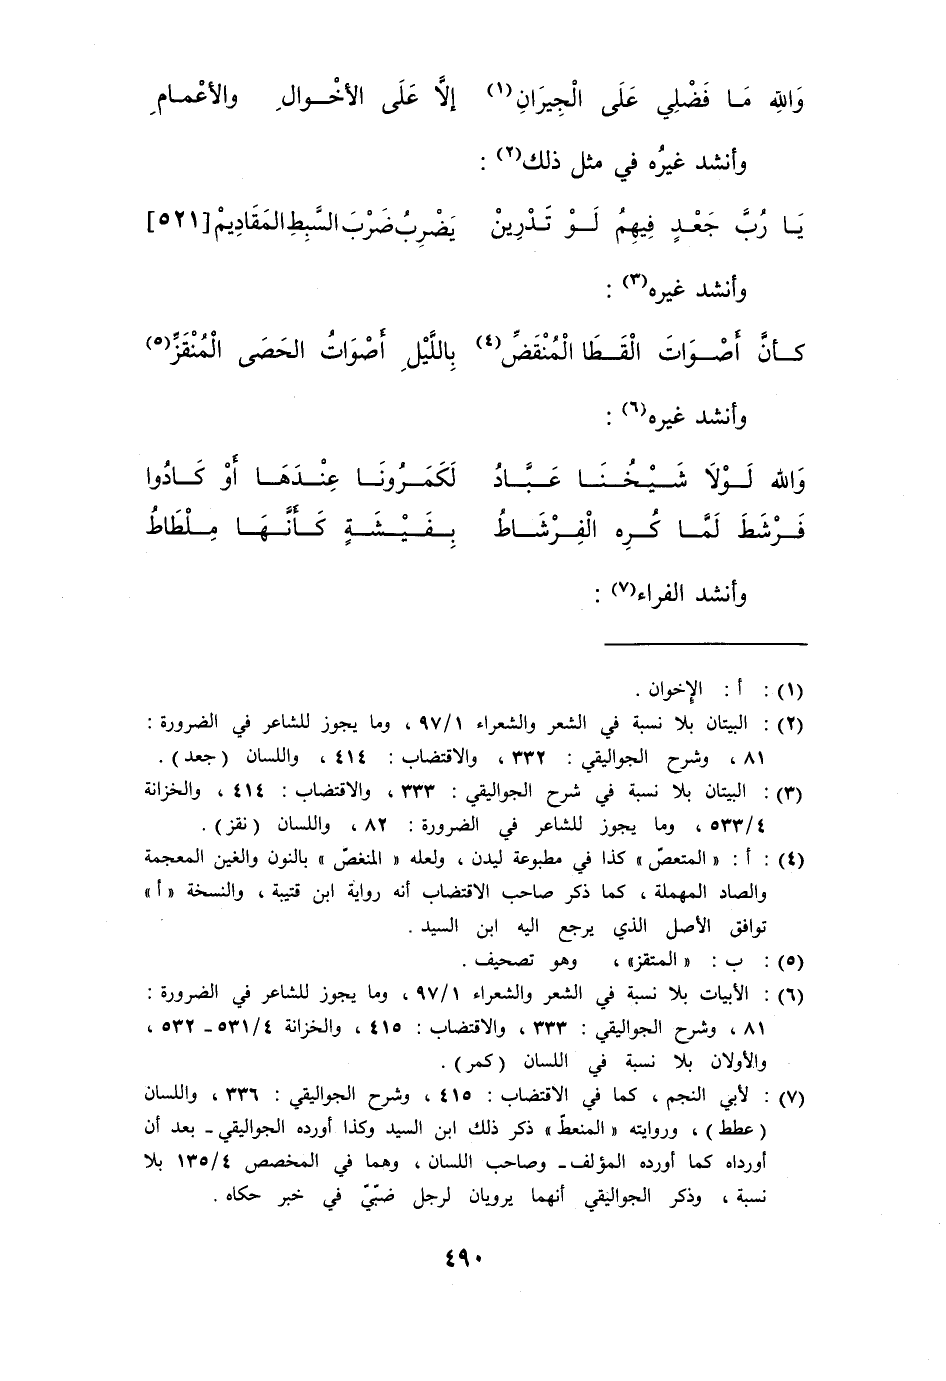 وَاللهِ مَا فَضْلِي عَلَى الْجِيرَانِ(١) إلَّا عَلَى الأخْوالِ والأعْمامِ
وأنشد غيرُه في مثل ذلك(٢) :
يَا رُبَّ جَعْدٍ فِيهِمُ لَوْ تَدْرِينْ يَضْرِبُ ضَرْبَ السَّبِطِ المَقَادِيمْ [٥٢١]
وأنشد غيره(٣) :
كأنَّ أَصْوَاتَ الْقَطَا الْمُنْقَضِّ(٤) بِاللَّيْلِ أَصْوَاتُ الحَصَى الْمُنْقَزِّ(٥)
وأنشد غيره(٦) :
وَالله لَوْلَا شَيْخُنَا عَبَّادُ لَكَمَرُونَا عِنْدَهَا أَوْ كَادُوا
فَرْشَطَ لَمَّا كُرِه الْفِرْشَاطُ بِفَيْشَةٍ كَأَنَّهَا مِلْطَاطُ
وأنشد الفراء(٧) :
(١) : أ : الإخوان .
(٢) : البيتان بلا نسبة في الشعر والشعراء ٩٧/١ ، وما يجوز للشاعر في الضرورة :
٨١ ، وشرح الجواليقي : ٣٣٢ ، والاقتضاب : ٤١٤ ، واللسان (جعد) .
(٣) : البيتان بلا نسبة في شرح الجواليقي : ٣٣٣ ، والاقتضاب : ٤١٤ ، والخزانة
٥٣٣/٤ ، وما يجوز للشاعر في الضرورة : ٨٢ ، واللسان (نقز) .
(٤) : أ : « المتعصّ » كذا في مطبوعة ليدن ، ولعله « المنغصّ » بالنون والغين المعجمة
والصاد المهملة ، كما ذكر صاحب الاقتضاب أنه رواية ابن قتيبة ، والنسخة « أ »
توافق الأصل الذي يرجع اليه ابن السيد .
(٥) : ب : « المتقز» ، وهو تصحيف .
(٦) : الأبيات بلا نسبة في الشعر والشعراء ٩٧/١ ، وما يجوز للشاعر في الضرورة :
٨١ ، وشرح الجواليقي : ٣٣٣ ، والاقتضاب : ٤١٥ ، والخزانة ٥٣١/٤ - ٥٣٢ ،
والأولان بلا نسبة في اللسان (كمر) .
(٧) : لأبي النجم ، كما في الاقتضاب : ٤١٥ ، وشرح الجواليقي : ٣٣٦ ، واللسان
(عطط) ، وروايته « المنعطّ » ذكر ذلك ابن السيد وكذا أورده الجواليقي - بعد أن
أورداه كما أورده المؤلف - وصاحب اللسان ، وهما في المخصص ١٣٥/٤ بلا
نسبة ، وذكر الجواليقي أنهما يرويان لرجل ضبّيّ في خبر حكاه .
٤٩٠